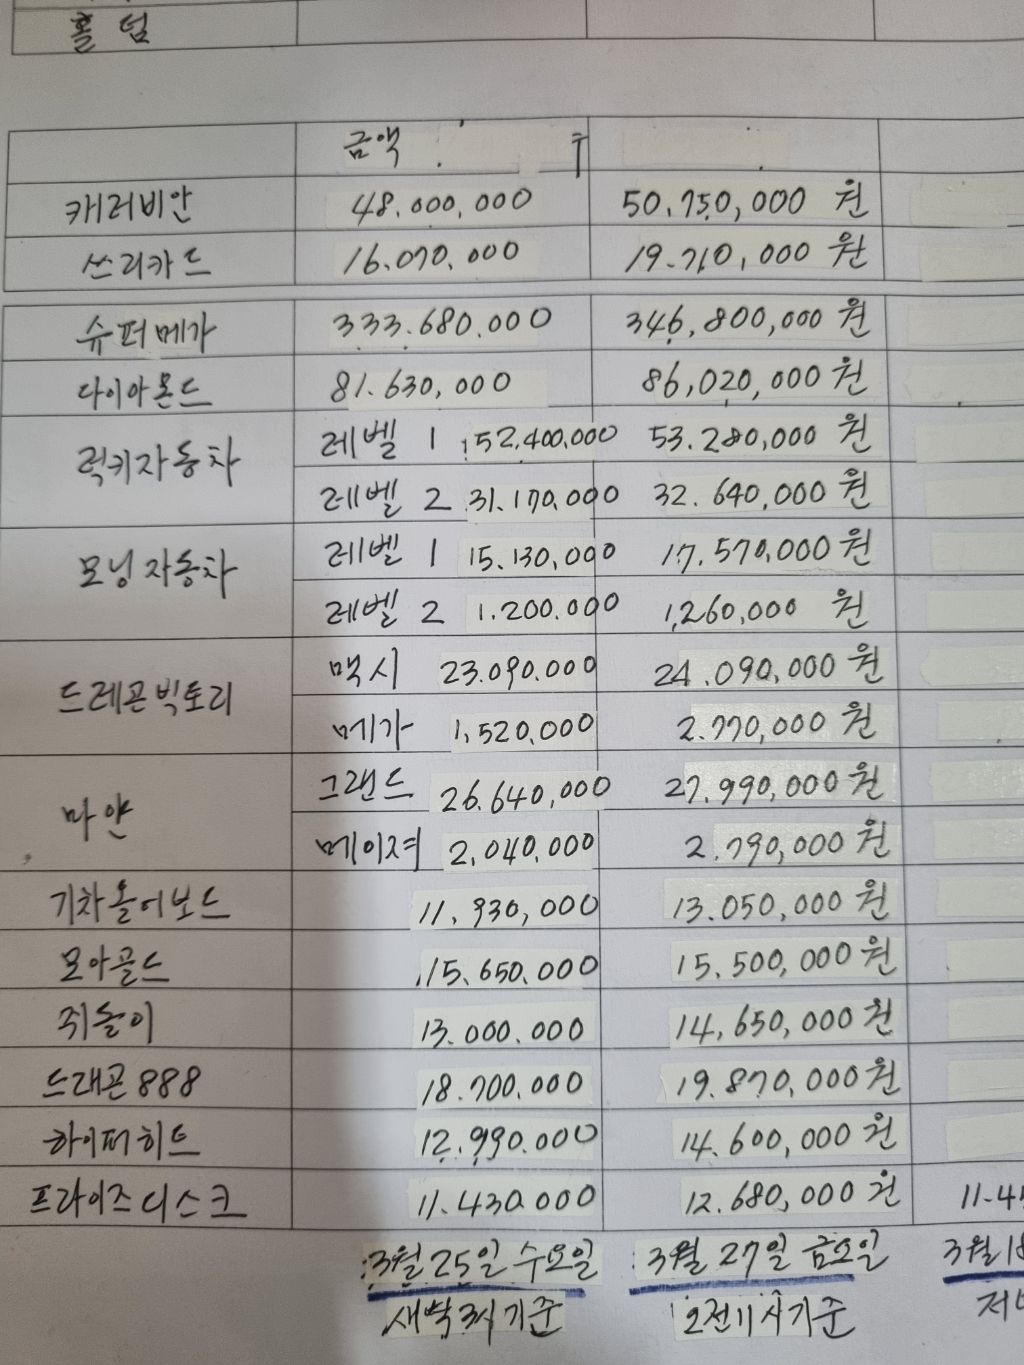 홀덤
금액
캐러비안 48.000,000 50.750,000 원
쓰리카드 16.070.000 19.710,000 원
슈퍼메가 333.680.000 346,800,000 원
다이아몬드 81.630,000 86,020,000 원
럭키자동차 레벨 1 52,400,000 53.280,000 원
레벨 2 31.170,000 32.640,000 원
모닝자동차 레벨 1 15.130,000 17.570,000 원
레벨 2 1.200.000 1,260,000 원
드레곤빅토리 맥시 23.090.000 24.090,000 원
메가 1,520,000 2.770,000 원
마얀 그랜드 26.640,000 27.990,000 원
메이져 2,040,000 2.790,000 원
기차올어보드 11,930,000 13.050,000 원
모아골드 15,650.000 15.500,000 원
쥐돌이 13.000.000 14,650,000 원
드래곤 888 18.700.000 19.870,000 원
하이퍼히트 12.990.000 14.600,000 원
프라이즈디스크 11.430.000 12.680,000 원
3월 25일 수요일 3월 27일 금요일
새벽 3시기준 오전11시기준